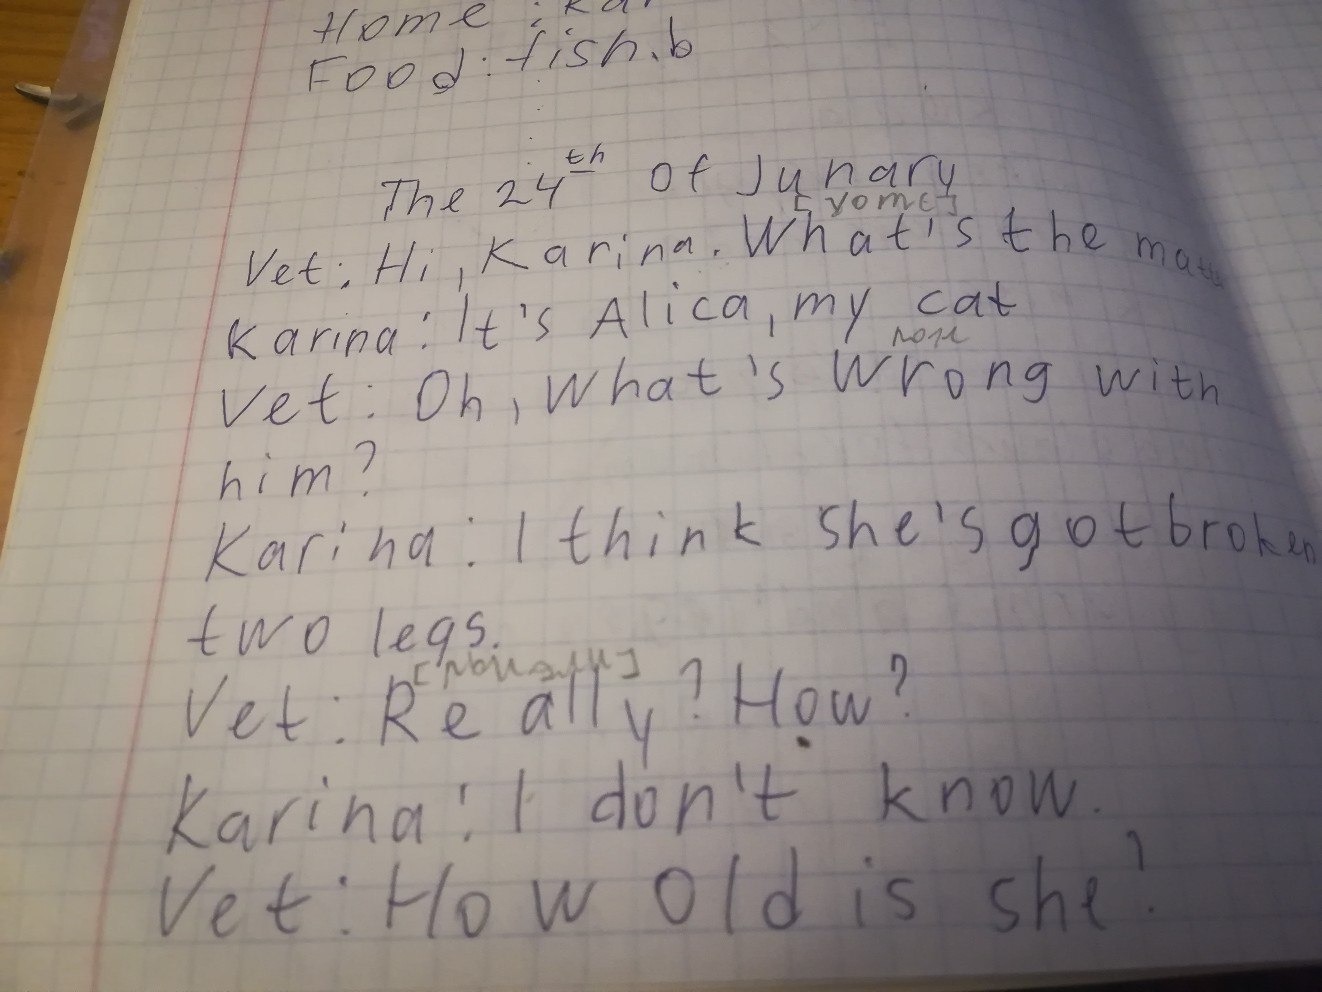 Home :
Food: fish.b
The 24th of Junary
Vet: Hi, Karina. What's the
Karina: It's Alica, my cat
Vet: Oh, What's Wrong with
him?
Karina: I think she's got broken
two legs.
Vet: Really? How?
Karina: I don't know.
Vet: How old is she?